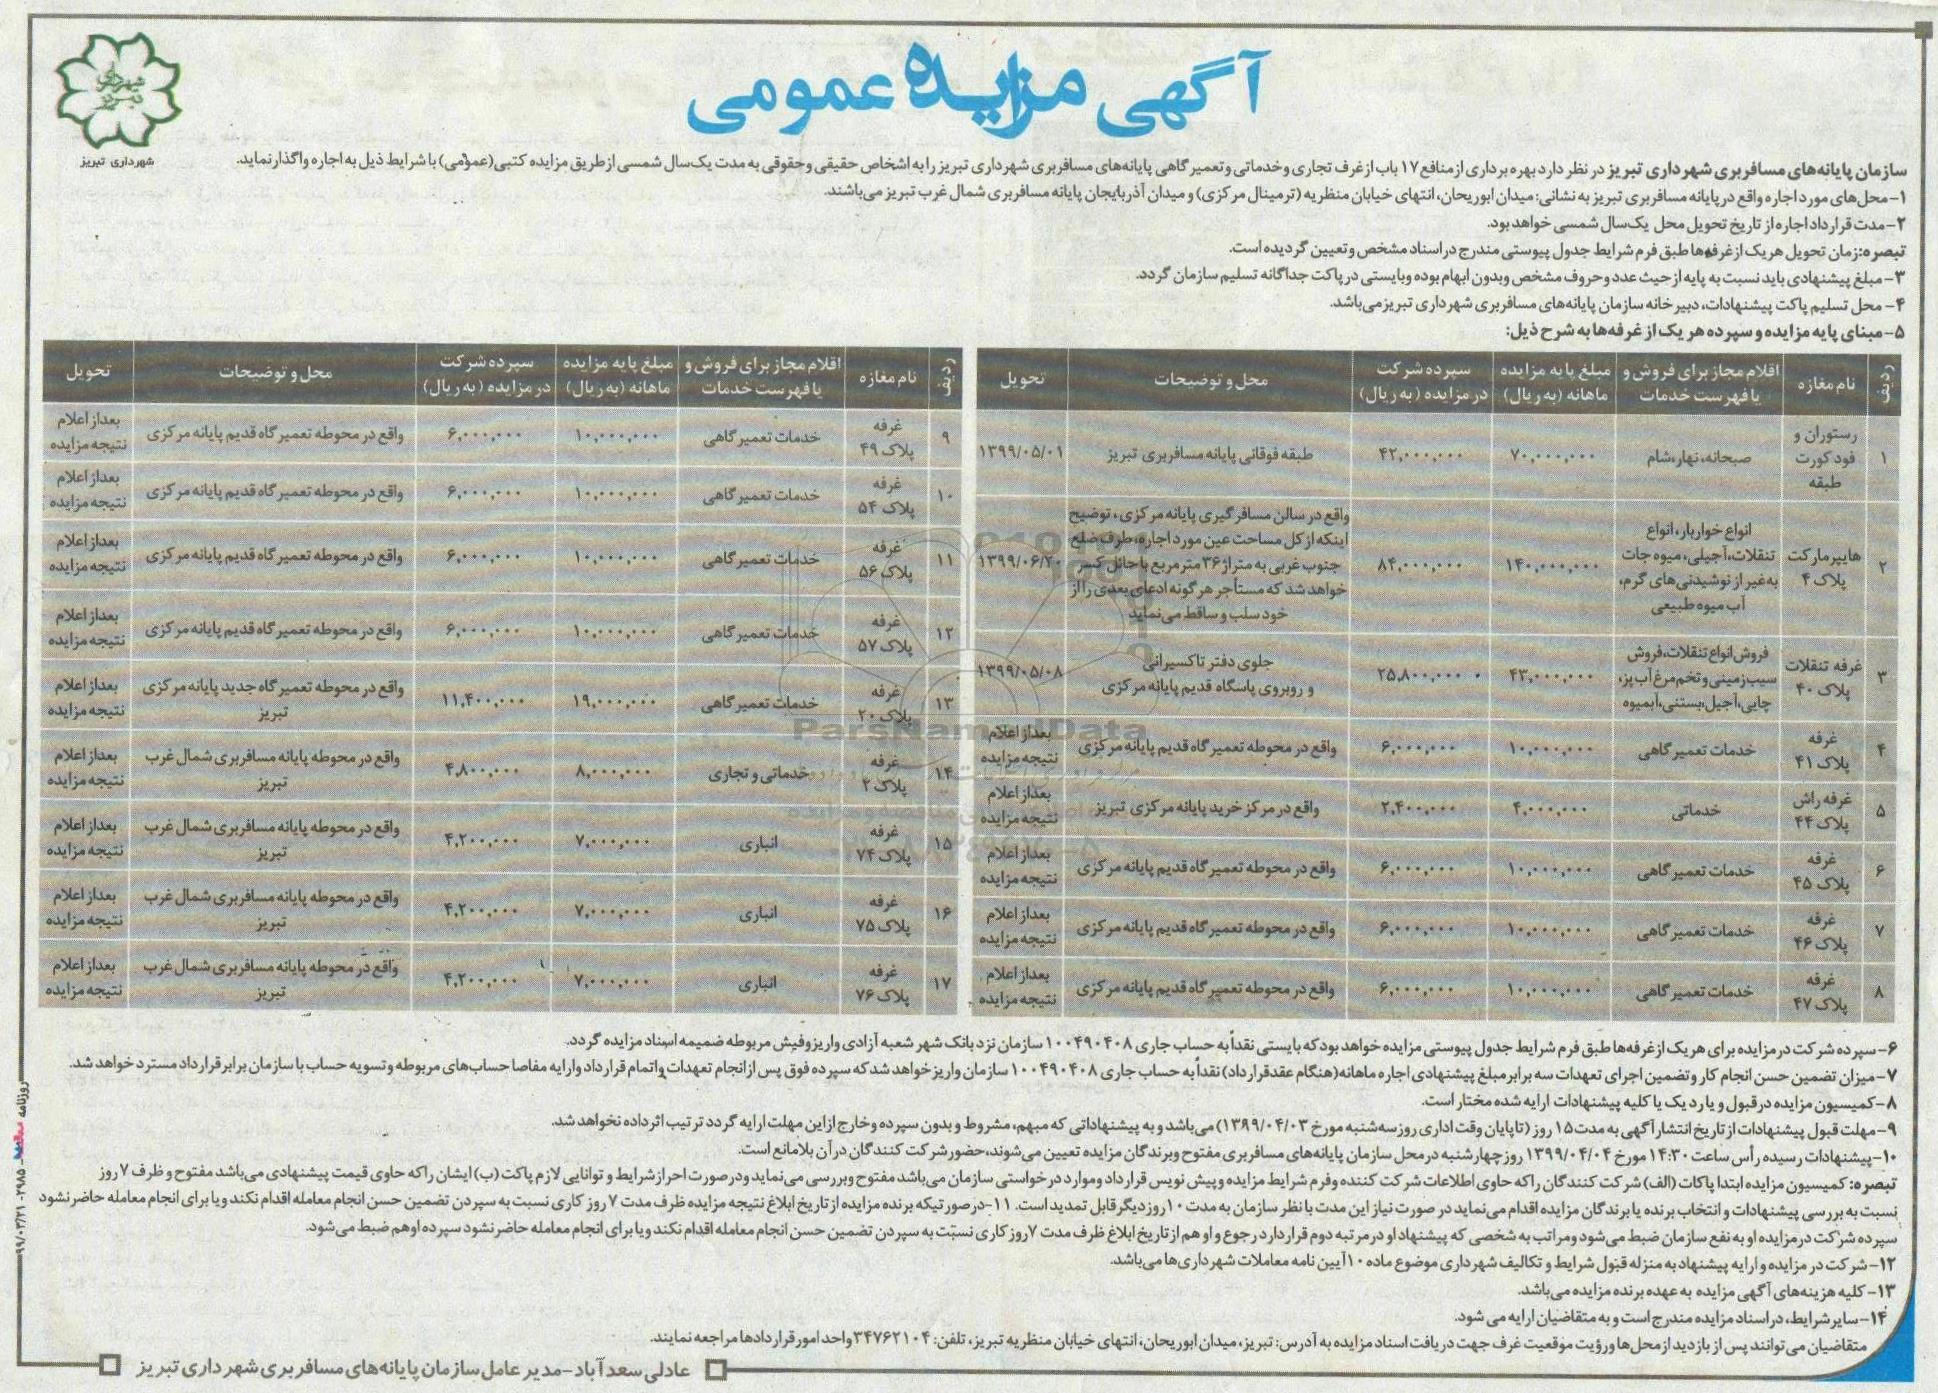 آگهی مزایده عمومی
شهرداری تبریز
شهرداری تبریز
سازمان پایانه‌های مسافربری شهرداری تبریز در نظر دارد بهره برداری از منافع ۱۷ باب از غرف تجاری و خدماتی و تعمیرگاهی پایانه‌های مسافربری شهرداری تبریز را به اشخاص حقیقی و حقوقی به مدت یک‌سال شمسی از طریق مزایده کتبی (عمومی) با شرایط ذیل به اجاره واگذار نماید.
۱- محل‌های مورد اجاره واقع در پایانه مسافربری تبریز به نشانی: میدان ابوریحان، انتهای خیابان منظریه (ترمینال مرکزی) و میدان آذربایجان پایانه مسافربری شمال غرب تبریز می‌باشند.
۲- مدت قرارداد اجاره از تاریخ تحویل محل یک‌سال شمسی خواهد بود.
تبصره: زمان تحویل هر یک از غرفه‌ها طبق فرم شرایط جدول پیوستی مندرج در اسناد مشخص و تعیین گردیده است.
۳- مبلغ پیشنهادی باید نسبت به پایه از حیث عدد و حروف مشخص و بدون ابهام بوده و بایستی در پاکت جداگانه تسلیم سازمان گردد.
۴- محل تسلیم پاکت پیشنهادات، دبیرخانه سازمان پایانه‌های مسافربری شهرداری تبریز می‌باشد.
۵- مبنای پایه مزایده و سپرده هر یک از غرفه‌ها به شرح ذیل:
ردیف | نام مغازه | اقلام مجاز برای فروش و یا فهرست خدمات | مبلغ پایه مزایده ماهانه (به ریال) | سپرده شرکت در مزایده (به ریال) | محل و توضیحات | تحویل
۱ | رستوران و فود کورت طبقه | صبحانه، نهار، شام | ۷۰,۰۰۰,۰۰۰ | ۴۲,۰۰۰,۰۰۰ | طبقه فوقانی پایانه مسافربری تبریز | ۱۳۹۹/۰۵/۰۱
۲ | هایپر مارکت پلاک ۴ | انواع خواربار، انواع تنقلات، آجیلی، میوه جات به غیر از نوشیدنی‌های گرم، آب میوه طبیعی | ۱۴۰,۰۰۰,۰۰۰ | ۸۴,۰۰۰,۰۰۰ | واقع در سالن مسافرگیری پایانه مرکزی، توضیح اینکه از کل مساحت عین مورد اجاره، طرف ضلع جنوب غربی به متراژ ۳۶ متر مربع با حائل کسر خواهد شد که مستأجر هر گونه ادعای بعدی را از خود سلب و ساقط می‌نماید | ۱۳۹۹/۰۶/۲۰
۳ | غرفه تنقلات پلاک ۴۰ | فروش انواع تنقلات، فروش سیب زمینی و تخم مرغ آب پز، چایی، آجیل، بستنی، آبمیوه | ۴۳,۰۰۰,۰۰۰ | ۲۵,۸۰۰,۰۰۰ | جلوی دفتر تاکسیرانی و روبروی پاسگاه قدیم پایانه مرکزی | ۱۳۹۹/۰۵/۰۸
۴ | غرفه پلاک ۴۱ | خدمات تعمیرگاهی | ۱۰,۰۰۰,۰۰۰ | ۶,۰۰۰,۰۰۰ | واقع در محوطه تعمیرگاه قدیم پایانه مرکزی | بعد از اعلام نتیجه مزایده
۵ | غرفه راش پلاک ۴۴ | خدماتی | ۴,۰۰۰,۰۰۰ | ۲,۴۰۰,۰۰۰ | واقع در مرکز خرید پایانه مرکزی تبریز | بعد از اعلام نتیجه مزایده
۶ | غرفه پلاک ۴۵ | خدمات تعمیرگاهی | ۱۰,۰۰۰,۰۰۰ | ۶,۰۰۰,۰۰۰ | واقع در محوطه تعمیرگاه قدیم پایانه مرکزی | بعد از اعلام نتیجه مزایده
۷ | غرفه پلاک ۴۶ | خدمات تعمیرگاهی | ۱۰,۰۰۰,۰۰۰ | ۶,۰۰۰,۰۰۰ | واقع در محوطه تعمیرگاه قدیم پایانه مرکزی | بعد از اعلام نتیجه مزایده
۸ | غرفه پلاک ۴۷ | خدمات تعمیرگاهی | ۱۰,۰۰۰,۰۰۰ | ۶,۰۰۰,۰۰۰ | واقع در محوطه تعمیرگاه قدیم پایانه مرکزی | بعد از اعلام نتیجه مزایده
ردیف | نام مغازه | اقلام مجاز برای فروش و یا فهرست خدمات | مبلغ پایه مزایده ماهانه (به ریال) | سپرده شرکت در مزایده (به ریال) | محل و توضیحات | تحویل
۹ | غرفه پلاک ۴۹ | خدمات تعمیرگاهی | ۱۰,۰۰۰,۰۰۰ | ۶,۰۰۰,۰۰۰ | واقع در محوطه تعمیرگاه قدیم پایانه مرکزی | بعد از اعلام نتیجه مزایده
۱۰ | غرفه پلاک ۵۴ | خدمات تعمیرگاهی | ۱۰,۰۰۰,۰۰۰ | ۶,۰۰۰,۰۰۰ | واقع در محوطه تعمیرگاه قدیم پایانه مرکزی | بعد از اعلام نتیجه مزایده
۱۱ | غرفه پلاک ۵۶ | خدمات تعمیرگاهی | ۱۰,۰۰۰,۰۰۰ | ۶,۰۰۰,۰۰۰ | واقع در محوطه تعمیرگاه قدیم پایانه مرکزی | بعد از اعلام نتیجه مزایده
۱۲ | غرفه پلاک ۵۷ | خدمات تعمیرگاهی | ۱۰,۰۰۰,۰۰۰ | ۶,۰۰۰,۰۰۰ | واقع در محوطه تعمیرگاه قدیم پایانه مرکزی | بعد از اعلام نتیجه مزایده
۱۳ | غرفه پلاک ۲۰ | خدمات تعمیرگاهی | ۱۹,۰۰۰,۰۰۰ | ۱۱,۴۰۰,۰۰۰ | واقع در محوطه تعمیرگاه جدید پایانه مرکزی تبریز | بعد از اعلام نتیجه مزایده
۱۴ | غرفه پلاک ۲ | خدماتی و تجاری | ۸,۰۰۰,۰۰۰ | ۴,۸۰۰,۰۰۰ | واقع در محوطه پایانه مسافربری شمال غرب تبریز | بعد از اعلام نتیجه مزایده
۱۵ | غرفه پلاک ۷۴ | انباری | ۷,۰۰۰,۰۰۰ | ۴,۲۰۰,۰۰۰ | واقع در محوطه پایانه مسافربری شمال غرب تبریز | بعد از اعلام نتیجه مزایده
۱۶ | غرفه پلاک ۷۵ | انباری | ۷,۰۰۰,۰۰۰ | ۴,۲۰۰,۰۰۰ | واقع در محوطه پایانه مسافربری شمال غرب تبریز | بعد از اعلام نتیجه مزایده
۱۷ | غرفه پلاک ۷۶ | انباری | ۷,۰۰۰,۰۰۰ | ۴,۲۰۰,۰۰۰ | واقع در محوطه پایانه مسافربری شمال غرب تبریز | بعد از اعلام نتیجه مزایده
ParsNamadData
۶- سپرده شرکت در مزایده برای هر یک از غرفه‌ها طبق فرم شرایط جدول پیوستی مزایده خواهد بود که بایستی نقداً به حساب جاری ۱۰۰۴۹۰۴۰۸ سازمان نزد بانک شهر شعبه آزادی واریز و فیش مربوطه ضمیمه اسناد مزایده گردد.
۷- میزان تضمین حسن انجام کار و تضمین اجرای تعهدات سه برابر مبلغ پیشنهادی اجاره ماهانه (هنگام عقد قرارداد) نقداً به حساب جاری ۱۰۰۴۹۰۴۰۸ سازمان واریز خواهد شد که سپرده فوق پس از انجام تعهدات و اتمام قرارداد و ارایه مفاصا حساب‌های مربوطه و تسویه حساب با سازمان برابر قرارداد مسترد خواهد شد.
۸- کمیسیون مزایده در قبول و یا رد یک یا کلیه پیشنهادات ارایه شده مختار است.
۹- مهلت قبول پیشنهادات از تاریخ انتشار آگهی به مدت ۱۵ روز (تا پایان وقت اداری روز سه‌شنبه مورخ ۱۳۹۹/۰۴/۰۳) می‌باشد و به پیشنهاداتی که مبهم، مشروط و بدون سپرده و خارج از این مهلت ارایه گردد ترتیب اثر داده نخواهد شد.
۱۰- پیشنهادات رسیده رأس ساعت ۱۴:۳۰ مورخ ۱۳۹۹/۰۴/۰۴ روز چهارشنبه در محل سازمان پایانه‌های مسافربری مفتوح و برندگان مزایده تعیین می‌شوند، حضور شرکت کنندگان در آن بلامانع است.
تبصره: کمیسیون مزایده ابتدا پاکات (الف) شرکت کنندگان را که حاوی اطلاعات شرکت کننده و فرم شرایط مزایده و پیش نویس قرارداد و موارد درخواستی سازمان می‌باشد مفتوح و بررسی می‌نماید و در صورت احراز شرایط و توانایی لازم پاکت (ب) ایشان را که حاوی قیمت پیشنهادی می‌باشد مفتوح و ظرف ۷ روز
نسبت به بررسی پیشنهادات و انتخاب برنده یا برندگان مزایده اقدام می‌نماید در صورت نیاز این مدت با نظر سازمان به مدت ۱۰ روز دیگر قابل تمدید است. ۱۱- در صورتیکه برنده مزایده از تاریخ ابلاغ نتیجه مزایده ظرف مدت ۷ روز کاری نسبت به سپردن تضمین حسن انجام معامله اقدام نکند و یا برای انجام معامله حاضر نشود
سپرده شرکت در مزایده او به نفع سازمان ضبط می‌شود و مراتب به شخصی که پیشنهاد او در مرتبه دوم قرار دارد رجوع و او هم از تاریخ ابلاغ ظرف مدت ۷ روز کاری نسبت به سپردن تضمین حسن انجام معامله اقدام نکند و یا برای انجام معامله حاضر نشود سپرده او هم ضبط می‌شود.
۱۲- شرکت در مزایده و ارایه پیشنهاد به منزله قبول شرایط و تکالیف شهرداری موضوع ماده ۱۰ آیین نامه معاملات شهرداری‌ها می‌باشد.
۱۳- کلیه هزینه‌های آگهی مزایده به عهده برنده مزایده می‌باشد.
۱۴- سایر شرایط، در اسناد مزایده مندرج است و به متقاضیان ارایه می شود.
متقاضیان می‌توانند پس از بازدید از محل‌ها و رؤیت موقعیت غرف جهت دریافت اسناد مزایده به آدرس: تبریز، میدان ابوریحان، انتهای خیابان منظریه تبریز، تلفن: ۳۴۷۶۲۱۰۴ واحد امور قراردادها مراجعه نمایند.
عادلی سعدآباد - مدیر عامل سازمان پایانه‌های مسافربری شهرداری تبریز
روزنامه ۲۹۸۵ - ۹۹/۰۳/۲۱